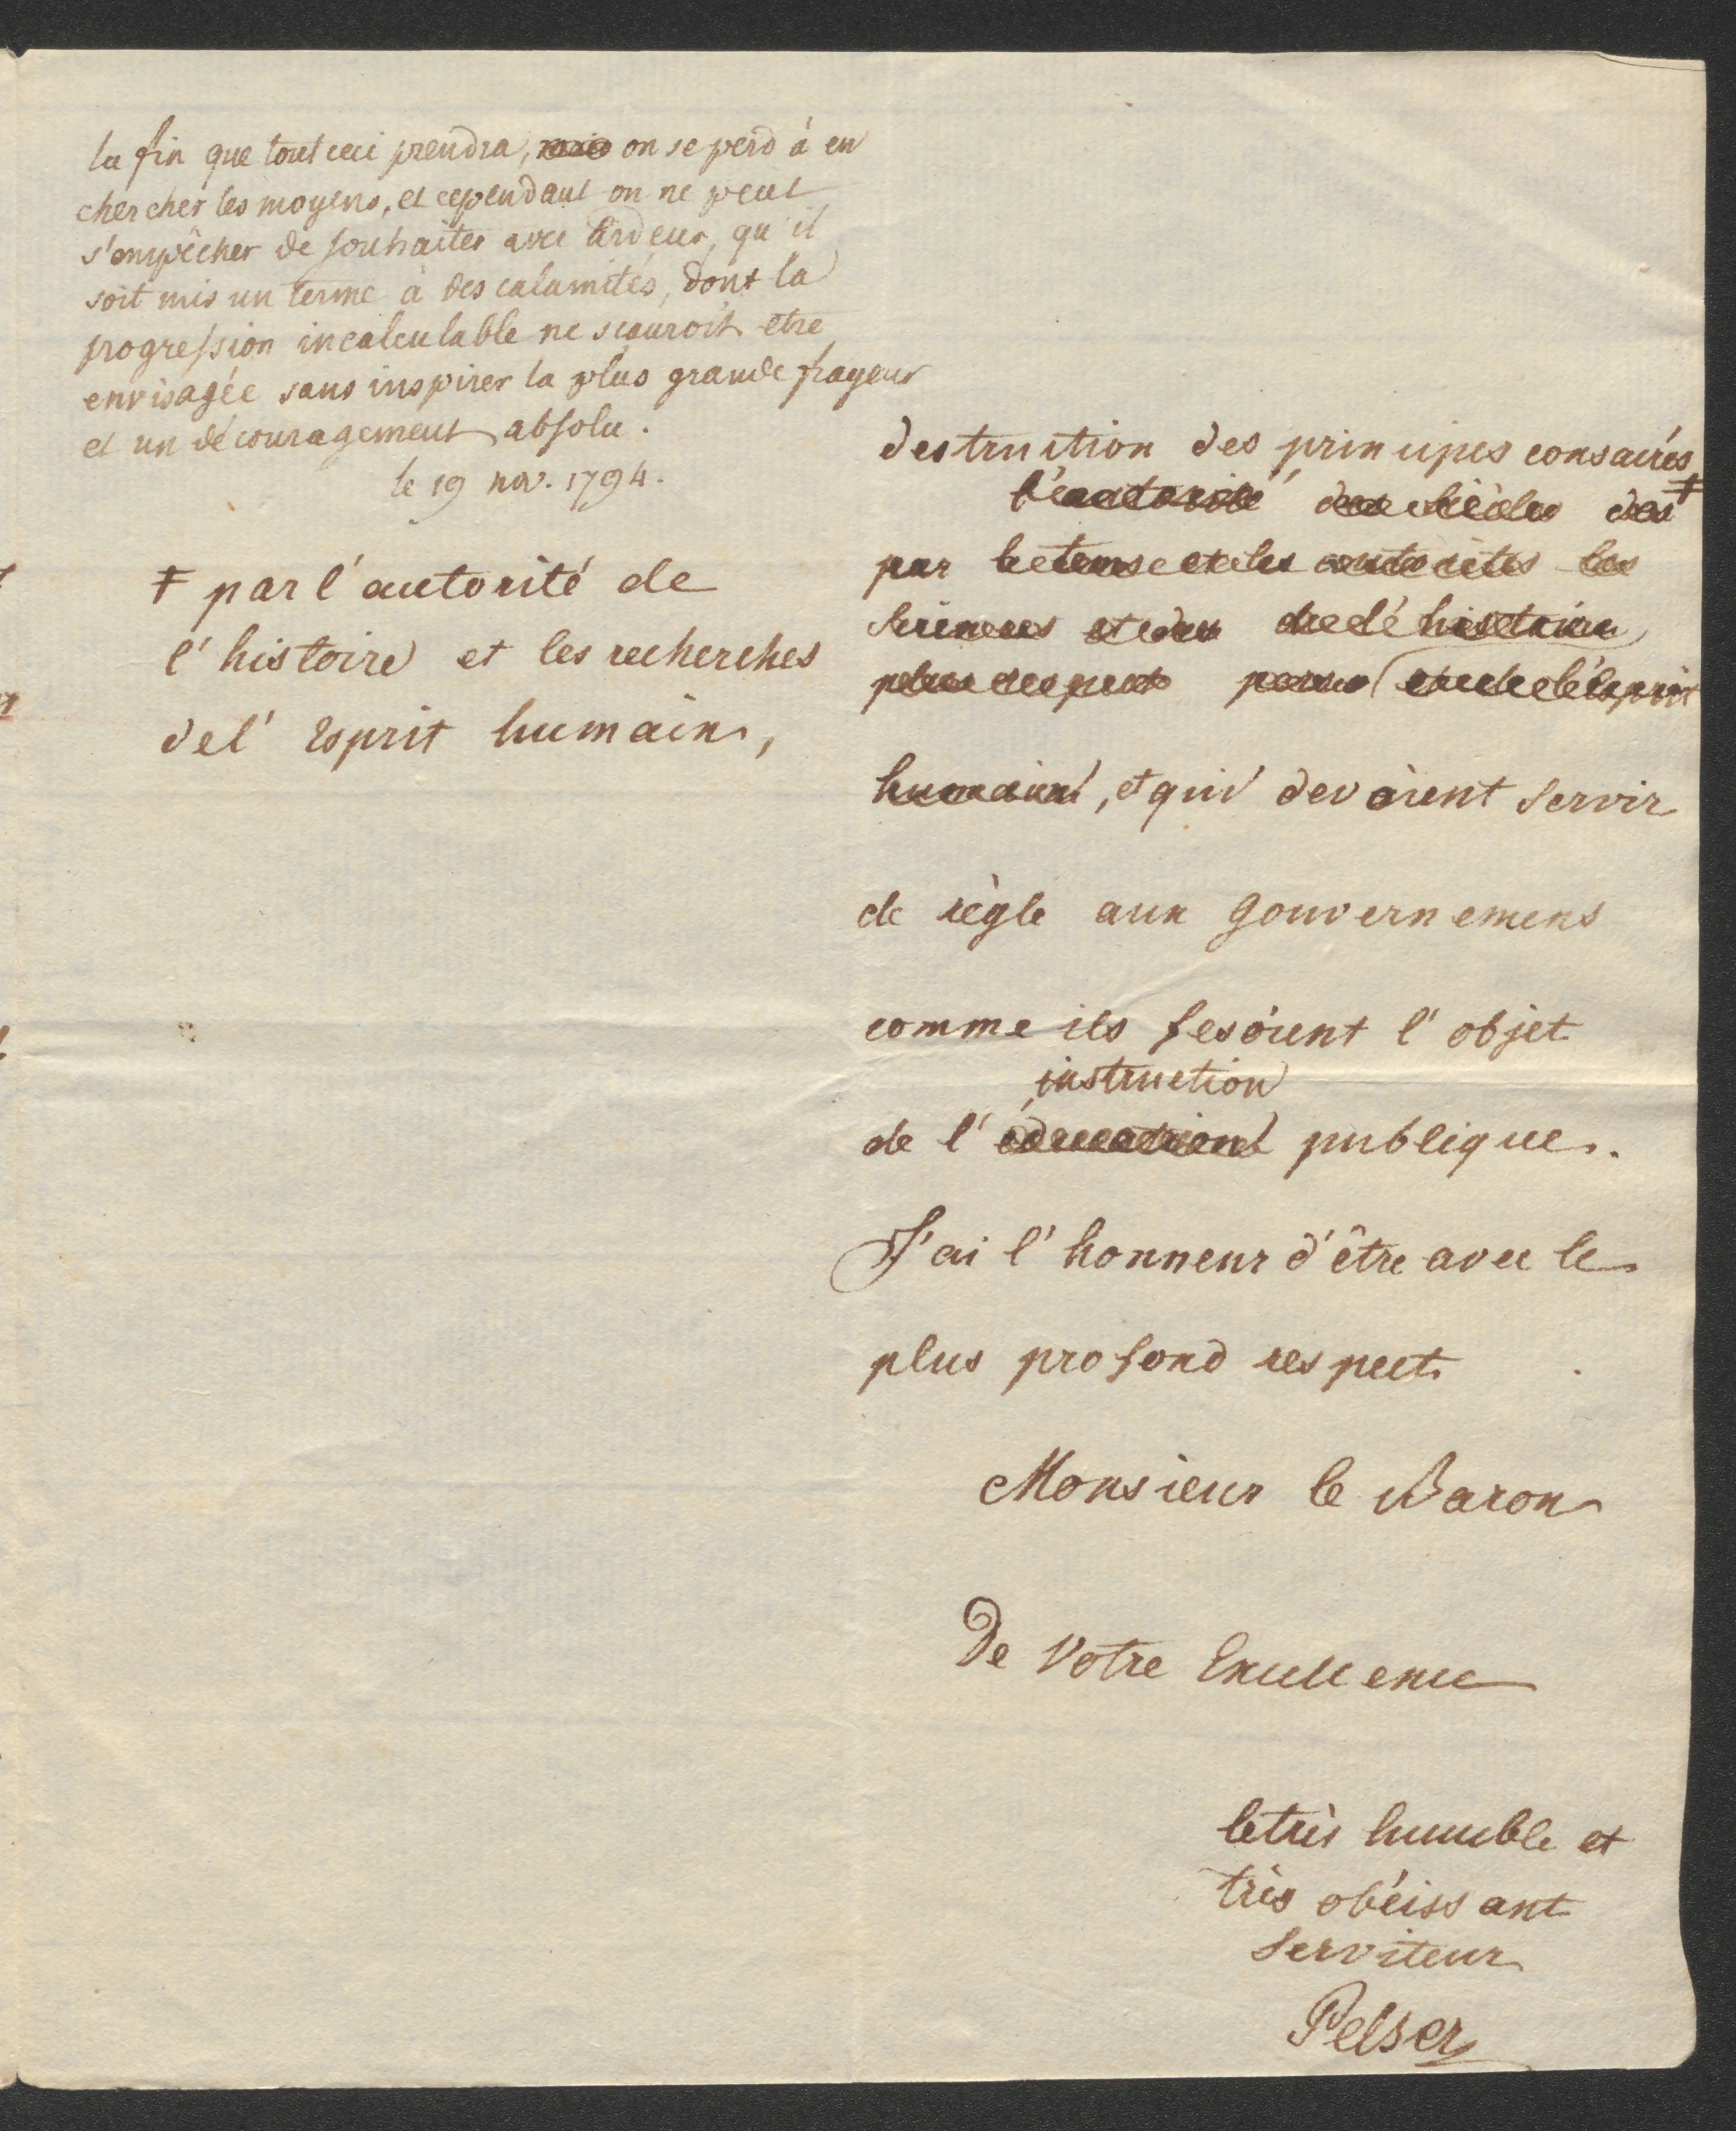 la fin que tout ceci prendra, mais on se perd à en
chercher les moyens, et cependant on ne peut
s'empêcher de souhaiter avec ardeur, qu'il
soit mis un terme à des calamités, dont la
progression incalculable ne sçauroit etre
envisagée sans inspirer la plus grande frayeur
et un découragement absolu.
le 19 nov. 1794.
‡ par l'autorité de
l'histoire et les recherches
de l'Esprit humain,
destruction des principes consacrés ‡
l'autorité des siècles des
par le tems et les autorités les
sciences et des de l'histoire
plus respect par et de l'esprit
humain, et qui devoient servir
de règle aux Gouvernemens
comme ils fesoient l'objet
instruction
de l'éducation publique.
J'ai l'honneur d'être avec le
plus profond respect
Monsieur le Baron
De Votre Excellence
le très humble et
très obéissant
serviteur
Pelser